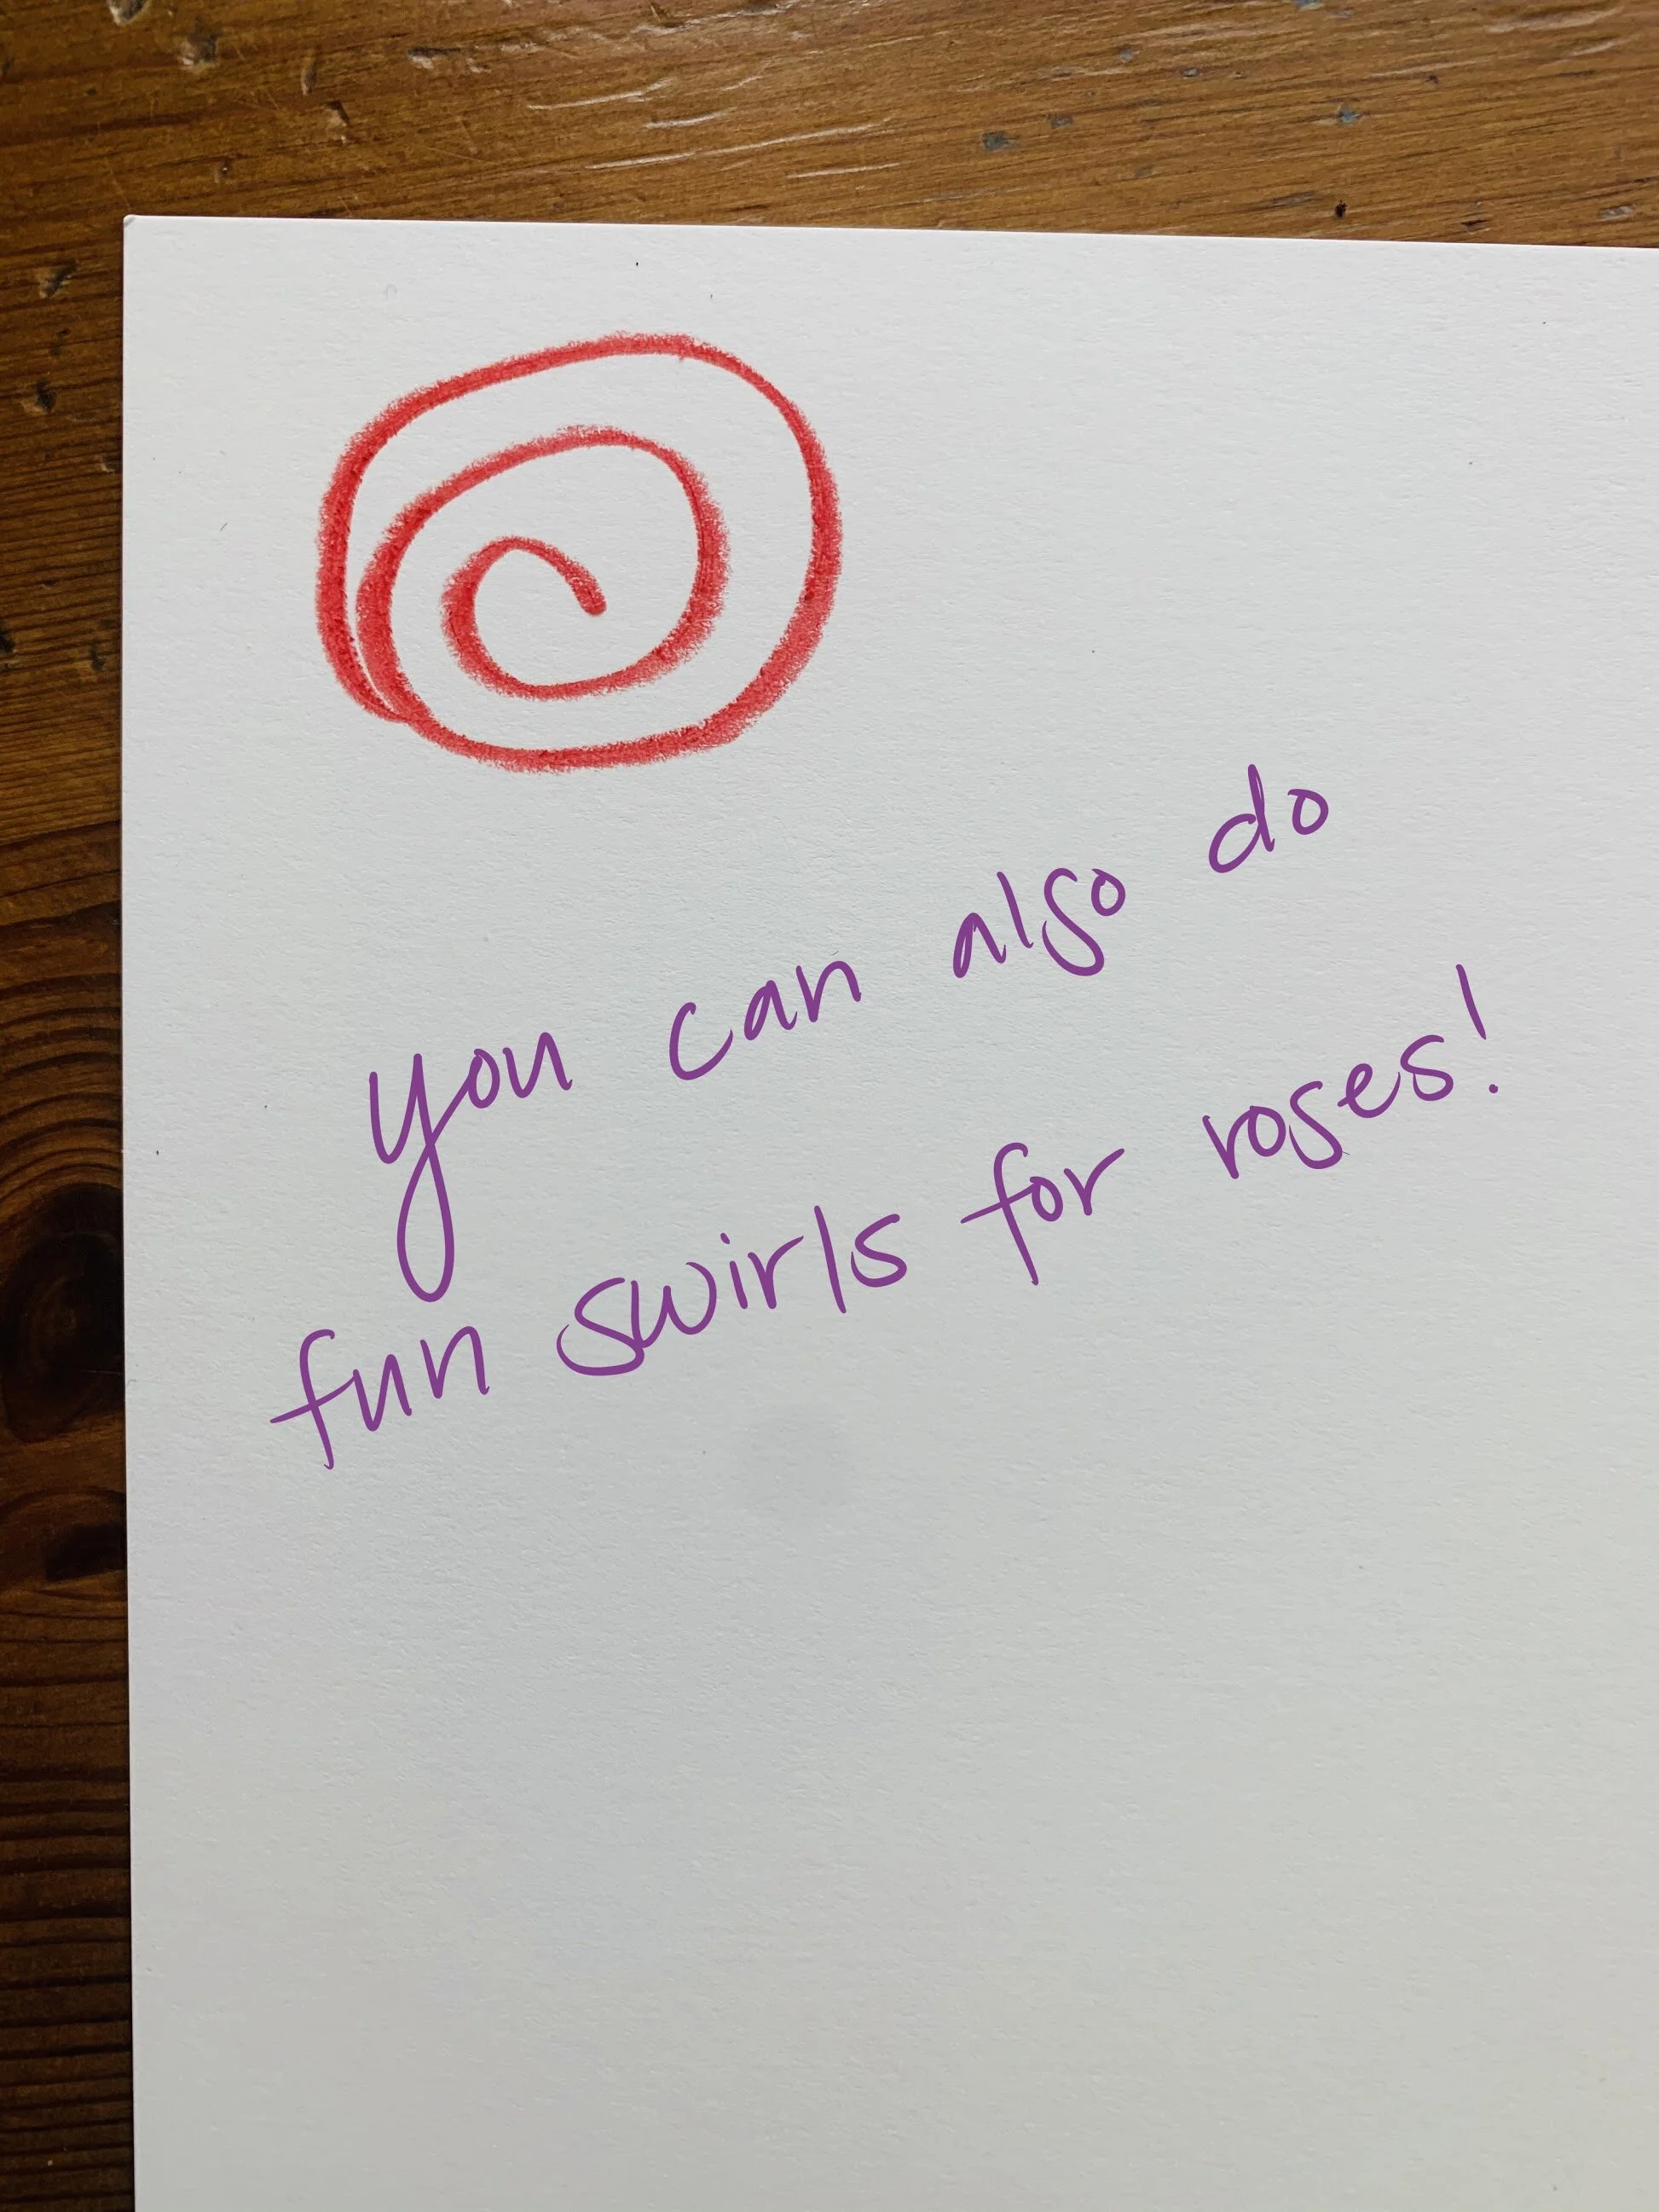 you can also do
fun swirls for roses!